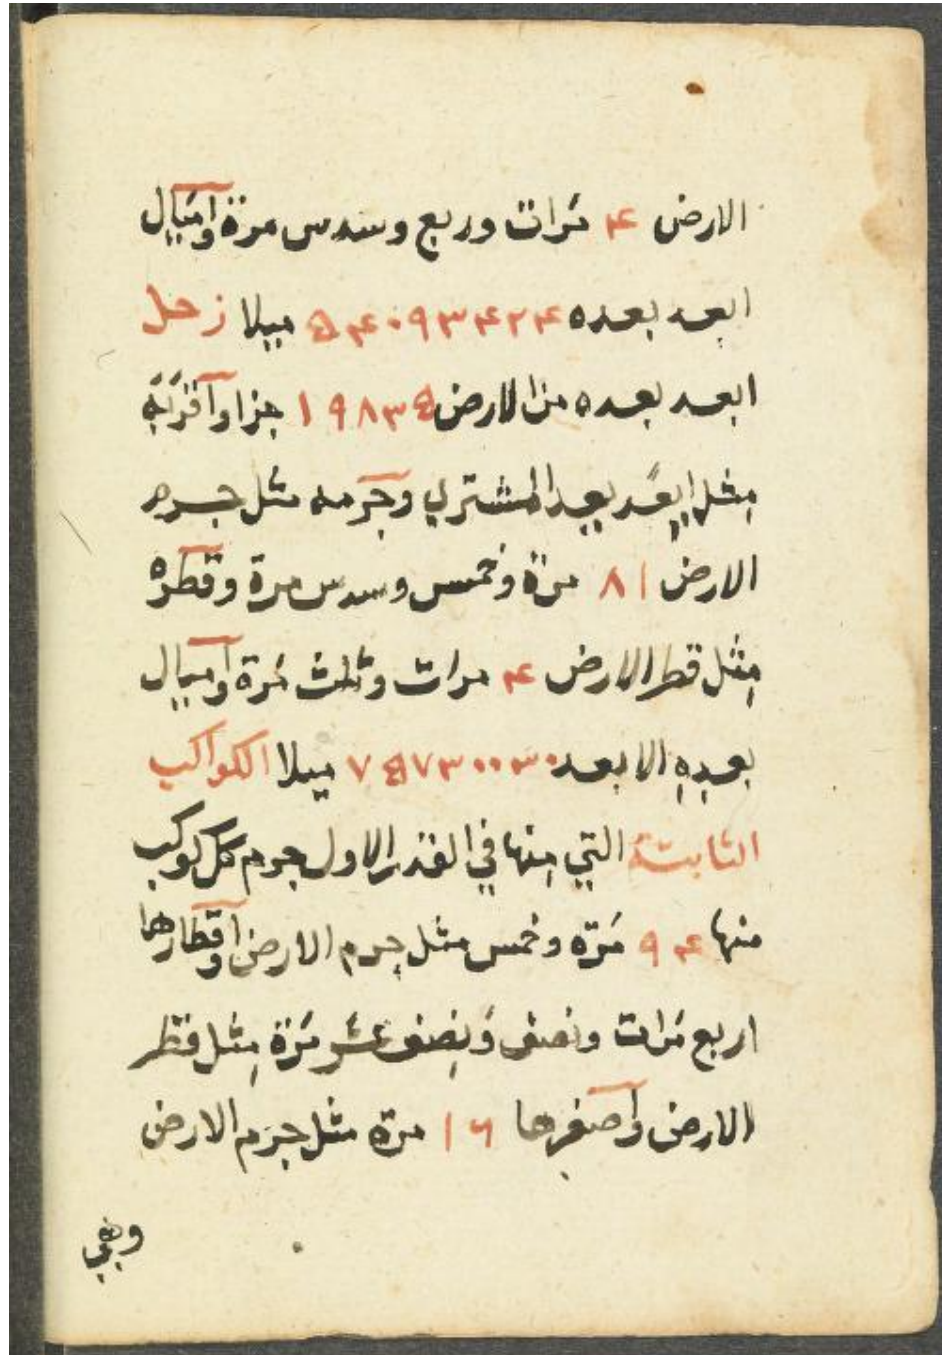 الارض ۴ مَرات وربع وسدس مرة وآميال
ابعد بعده ۵۴۰۹۳۴۲۴ ميلا زحل
ابعد بعده من الارض ۱۹۸۳۵ جزا وآقربَه
مِثل ابعَد بعد المشتري وجَرمه مثل جرم
الارض ۸۱ مرة وخمس وسدس مرة وقطره
مِثل قطر الارض ۴ مرات وثلث مَرة وآميال
بعدِهِ الابعد ۷۵۷۳۰۰۳۰ ميلا الكواكب
الثابتة التي مِنها في القدر الاول جرم كل كوكب
منها ۹۴ مَرّه وخمس مثل جرم الارض وآقطارها
اربع مَرات ونصف وَنِصف عشر مَرة مِثل قطر
الارض وآصغرها ۱۶ مرة مثل جرم الارض
وهي